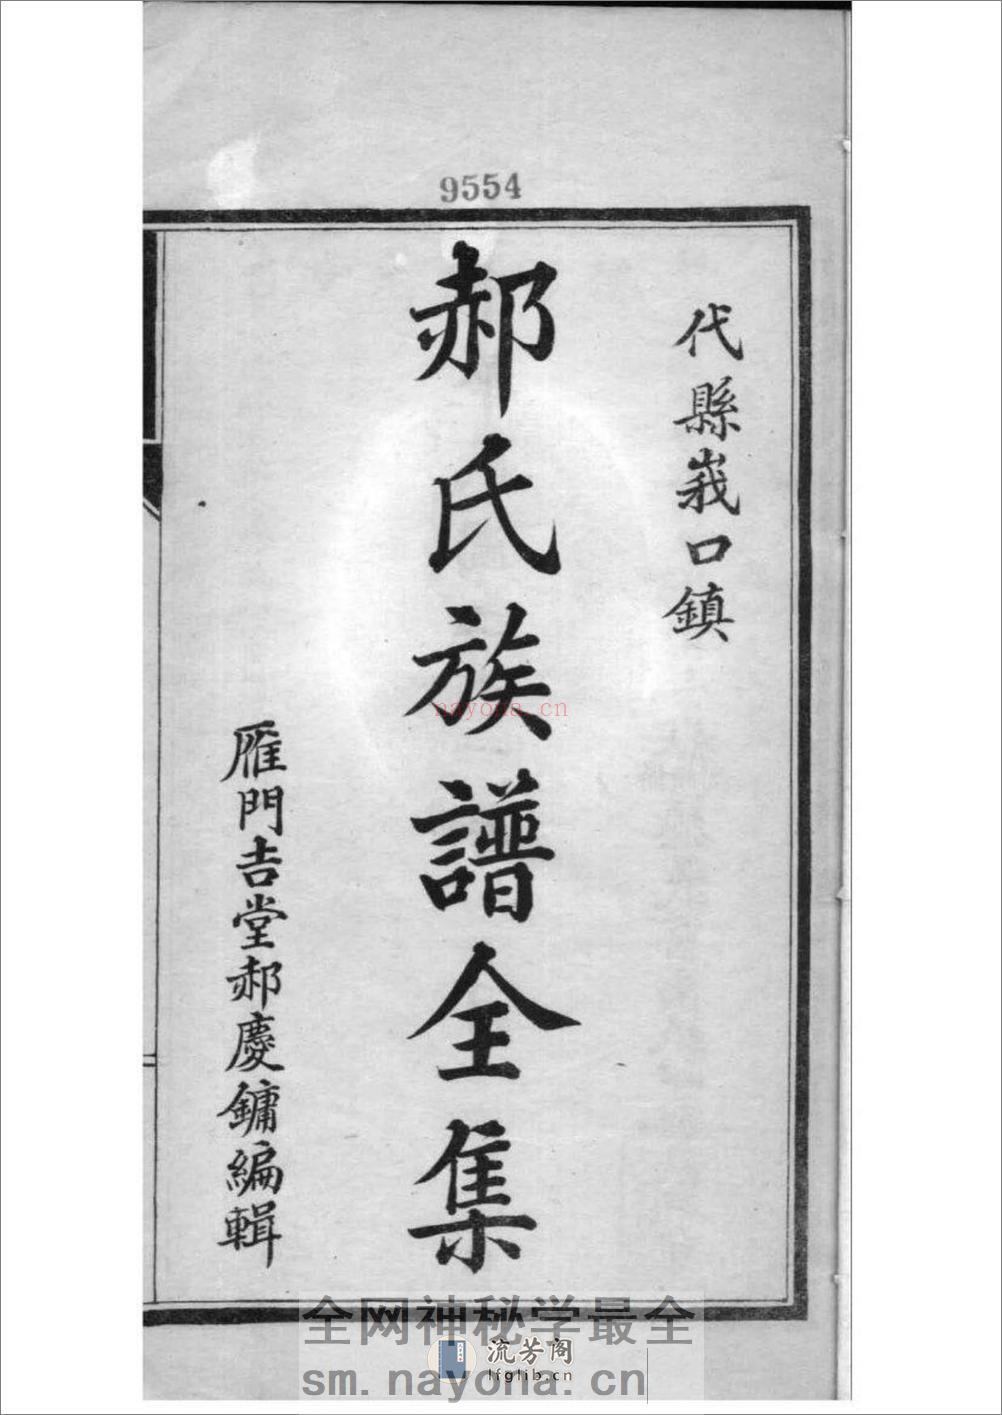 9554
代縣峩口鎮
郝氏族譜全集
雁門吉堂郝慶鏞編輯
nayona.cn
全网神秘学最全
流芳阁
lfglib.cn
sm.nayona.cn